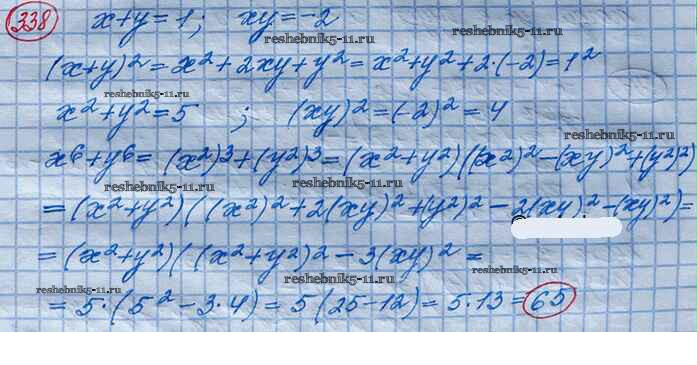 338 x+y=1; xy=-2
reshebnik5-11.ru
reshebnik5-11.ru
(x+y)²=x²+2xy+y²=x²+y²+2·(-2)=1²
reshebnik5-11.ru
x²+y²=5 ; (xy)²=(-2)²=4
reshebnik5-11.ru
x⁶+y⁶= (x²)³+(y²)³=(x²+y²)((x²)²-(xy)²+(y²)²)
reshebnik5-11.ru
reshebnik5-11.ru
=(x²+y²)((x²)²+2(xy)²+(y²)²-2(xy)²-(xy)²)=
=(x²+y²)((x²+y²)²-3(xy)²=
reshebnik5-11.ru
reshebnik5-11.ru
=5·(5²-3·4)=5(25-12)=5·13=65
reshebnik5-11.ru